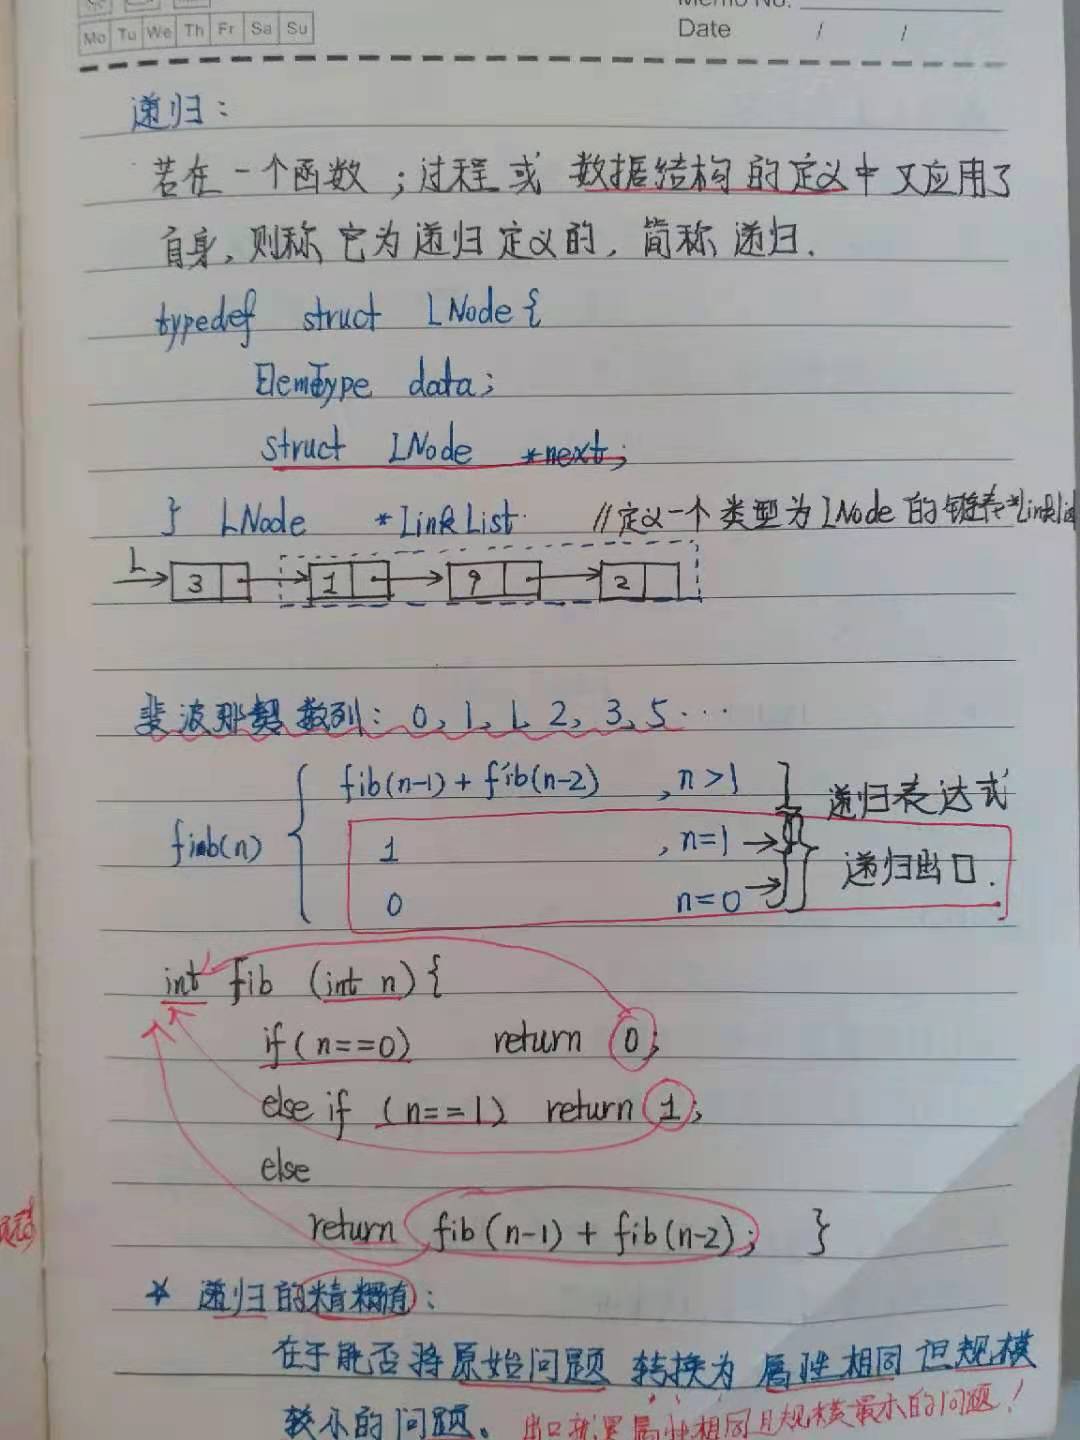 Memo No.
Mo Tu We Th Fr Sa Su
Date / /
递归：
若在一个函数；过程或 数据结构的定义中又应用了
自身，则称它为递归定义的，简称递归．
typedef struct LNode {
ElemType data;
struct LNode *next;
} LNode *LinkList //定义一个类型为LNode的链表*Linklist
L 3 1 9 2
斐波那契数列：0, 1, 1, 2, 3, 5 ···
fib(n-1) + fib(n-2) , n>1 递归表达式
fib(n) 1 , n=1 递归出口．
0 n=0
int fib (int n) {
if (n==0) return 0;
else if (n==1) return 1;
else
return fib(n-1) + fib(n-2); }
递归的精髓：
在于能否将原始问题 转换为 属性相同但规模
较小的问题。 出口就是属性相同且规模最小的问题！